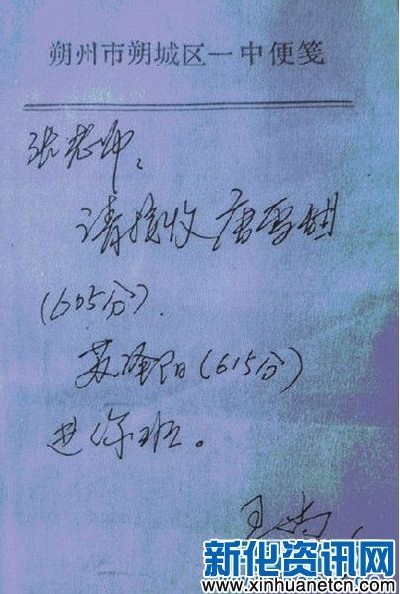 朔州市朔城区一中便笺
张老师：
请接收唐雪
(605分).
苏泽阳(615分)
进你班。
王
新化资讯网
www.xinhuanetcn.com